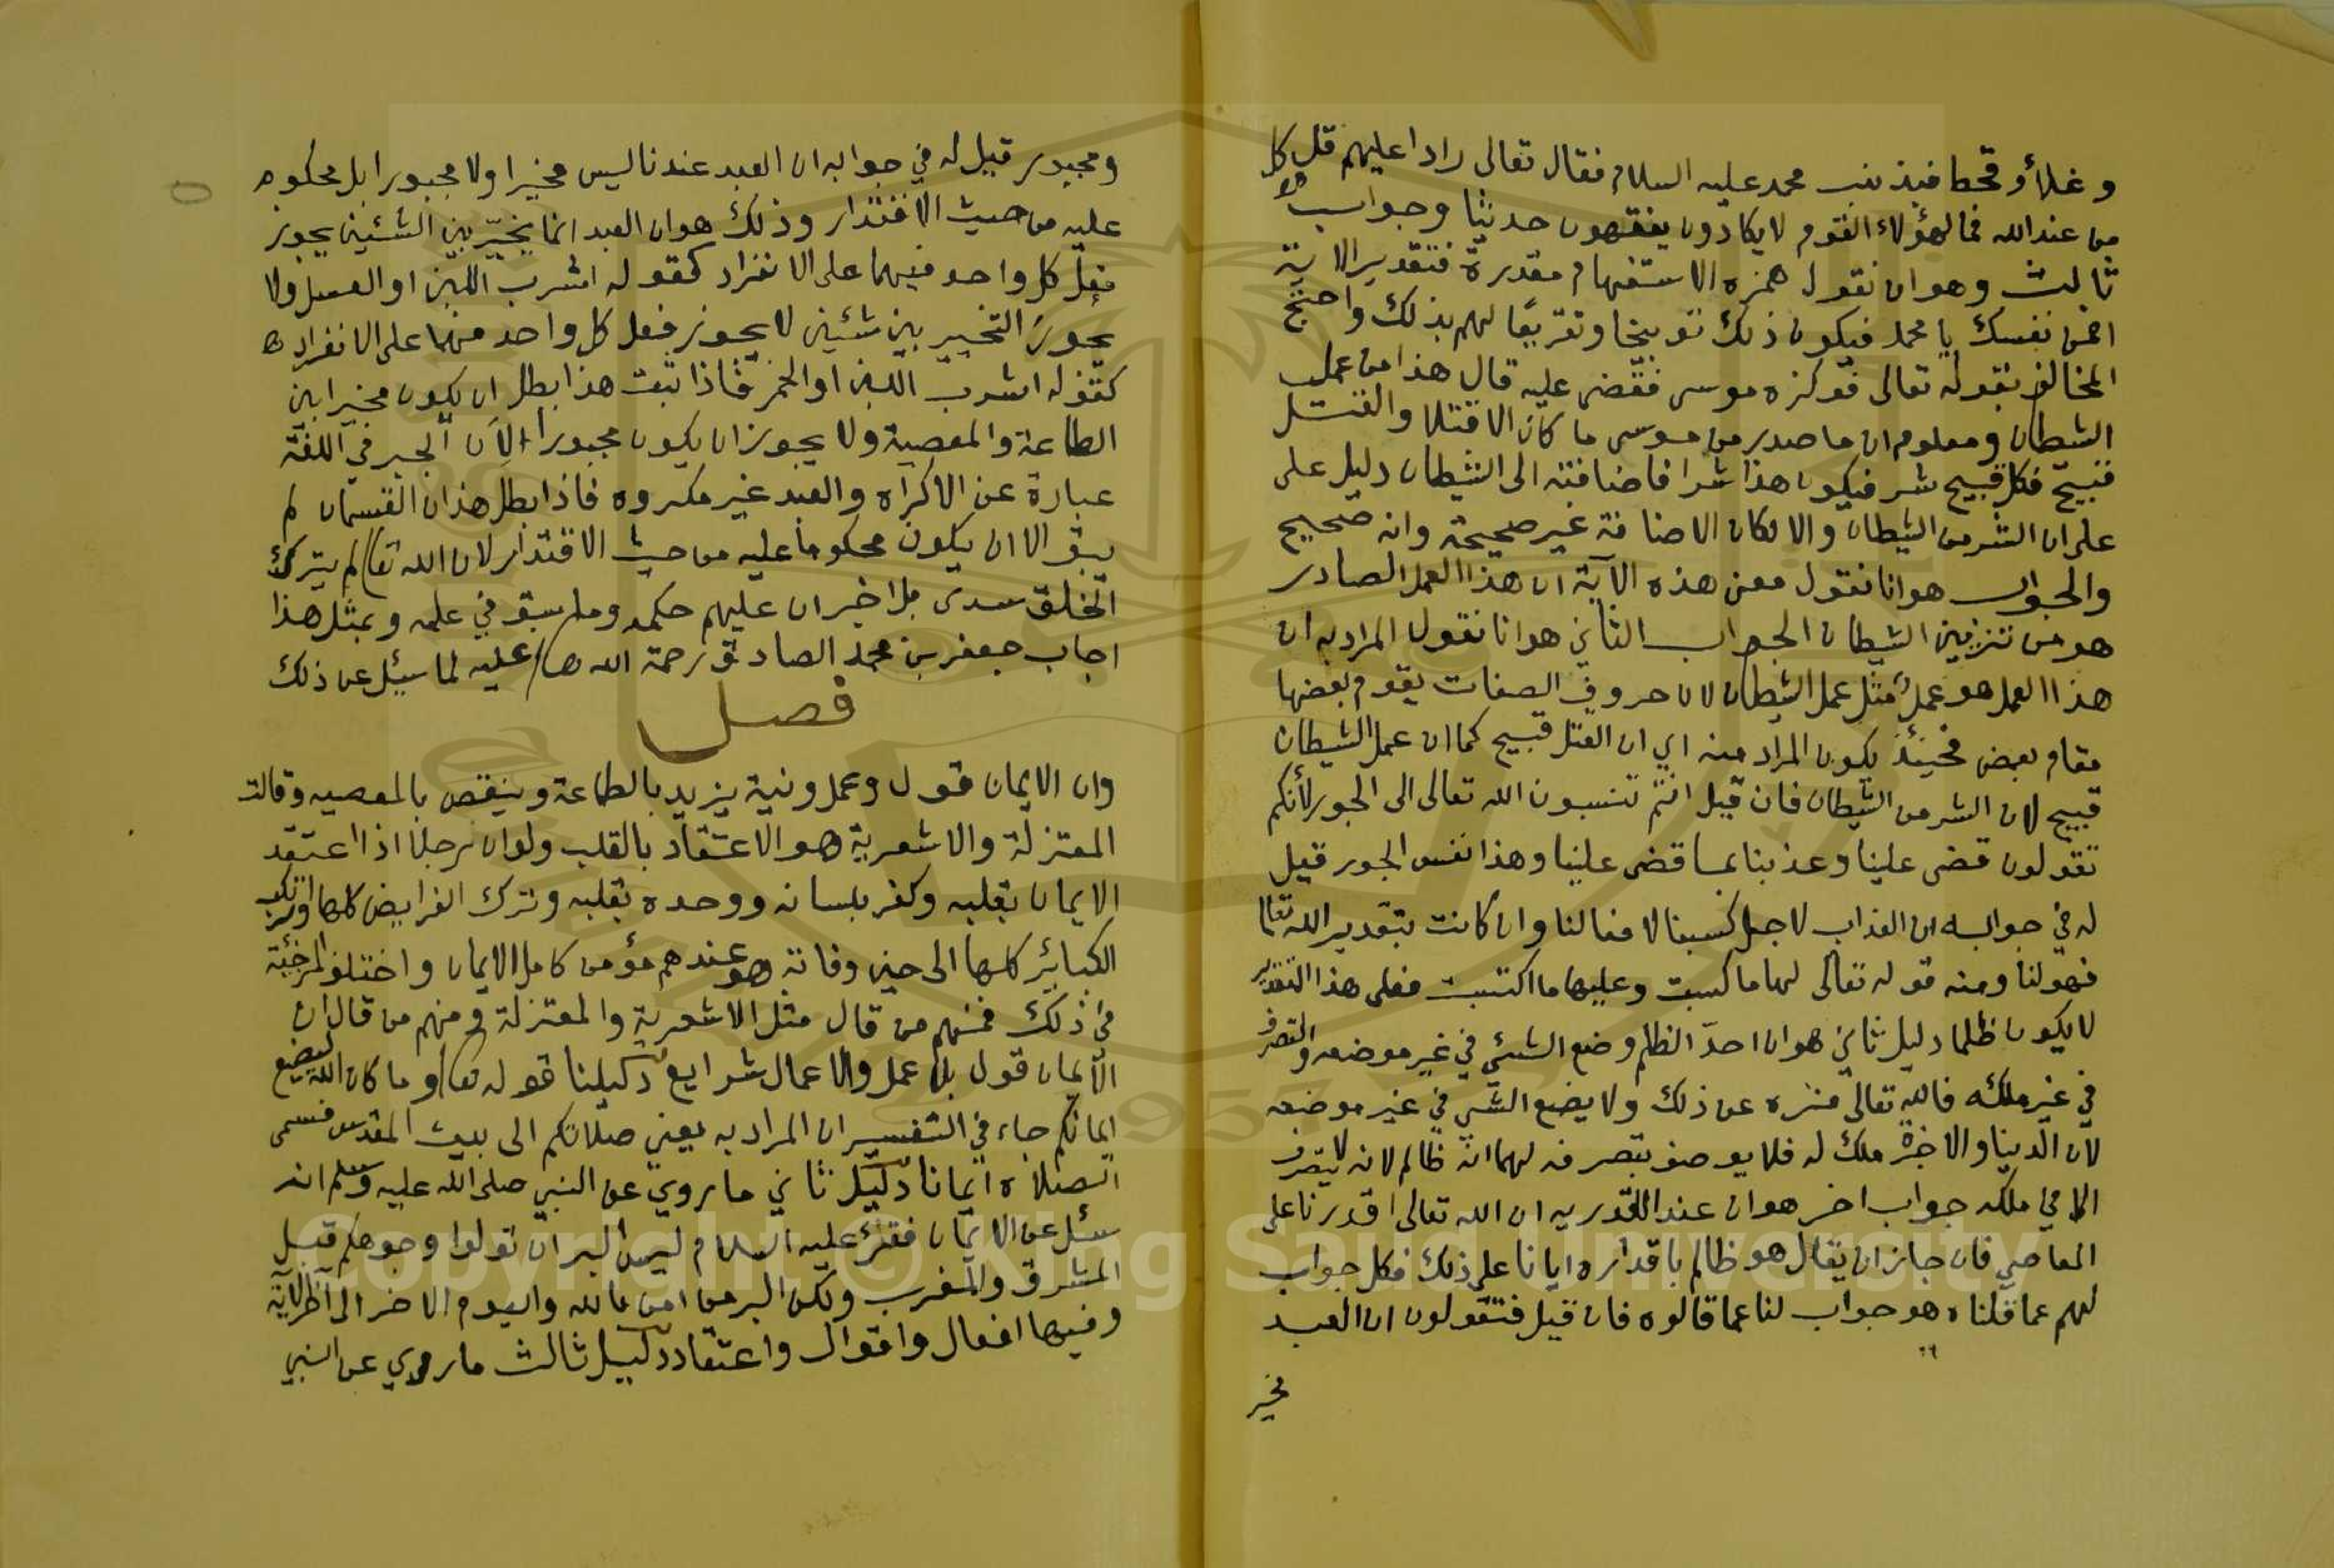 وغلأ وقحط فبذنب محمد عليه السلام فقال تعالى رادا عليهم قل كل
من عند الله فمالهؤلاء القوم لا يكادون يفقهون حديثا وجواب
ثالث وهو ان نقول همزه الاستفهام مقدرة فتقدير الاية
افمن نفسك يا محمد فيكون ذلك توبيخا وتقريعًا لهم بذلك واحتج
المخالف بقوله تعالى فوكزه موسى فقضى عليه قال هذا من عمل
الشيطان ومعلوم ان ما صدر من موسى ما كان الا قتلا والقتل
قبيح فكل قبيح شر فيكون هذا شرا فاضافته الى الشيطان دليل على
على ان الشر من الشيطان والا لكان الاضافة غير صحيحة وانه صحيح
والجواب هو انا نقول معنى هذه الآية ان هذا العمل الصادر
هو من تزيين الشيطان الجواب الثاني هو انا نقول المراد به ان
هذا العمل هو عمل مثل عمل الشيطان لان حروف الصفات يقوم بعضها
مقام بعض فحينئذ يكون المراد منه اي ان القتل قبيح كما ان عمل الشيطان
قبيح لان الشر من الشيطان فان قيل انتم تنسبون الله تعالى الى الجور لأنكم
تقولون قضى علينا وعذبنا بما قضى علينا وهذا نفس الجور قيل
له في جوابه ان العذاب لاجل كسبنا لافعالنا وان كانت بتقدير الله تعالى
فهولنا ومنه قوله تعالى لها ما كسبت وعليها ما اكتسبت فعلى هذا التقدير
لا يكون ظلما دليل ثاني هو ان احدّ الظلم وضع الشئي في غير موضعه والتصرف
في غير ملكه فالله تعالى منزه عن ذلك ولا يضع الشي في غير موضعه
لان الدنيا والاخرة ملك له فلا يوصف بتصرفه لهما انه ظالم لانه لا يتصرف
الا في ملكه جواب اخر هو ان عند القدريه ان الله تعالى اقدرنا على
المعاصي فان جاز ان يقال هو ظالم باقداره ايانا على ذلك فكل جواب
لهم عما قلناه هو جواب لنا عما قالوه فان قيل فتقولون ان العبد
مخير
ومجبور قيل له في جوابه ان العبد عندنا ليس مخيرا ولا مجبورا بل محكوم
عليه من حيث الاقتدار وذلك هو ان العبد انما يخيّر بين الشئين يجوز
فعل كل واحد فيهما على الانفراد كقوله اشرب اللبن او العسل ولا
يجوز التخيير بين شئين لا يجوز فعل كل واحد منهما على الانفراد
كقوله اشرب اللبن او الخمر فاذا ثبت هذا بطل ان يكون مخيرا بين
الطاعة والمعصية ولا يجوز ان يكون مجبورا لان الجبر في اللغة
عبارة عن الاكراه والعبد غير مكروه فاذا بطل هذان القسمان لم
يبق الا ان يكون محكوما عليه من حيث الاقتدار لان الله تعالى لم يترك
الخلق سدى بل اخبر ان عليهم حكمه وما سبق في علمه وبمثل هذا
اجاب جعفر بن محمد الصادق رحمة الله عليه لما سيل عن ذلك
فصل
وان الايمان قول وعمل ونية يزيد بالطاعة وينقص بالمعصيه وقالت
المعتزلة والاشعرية هو الاعتقاد بالقلب ولو ان رجلا اذا اعتقد
الايمان بقلبه وكفر بلسانه ووحده بقلبه وترك الفرايض كلها وارتكب
الكبائر كلها الى حين وفاته هو عندهم مؤمن كامل الايمان واختلف المرجئة
في ذلك فمنهم من قال مثل الاشعرية والمعتزلة ومنهم من قال ان
الايمان قول بلا عمل والاعمال شرايع دليلنا قوله تعالى وما كان الله ليضيع
ايمانكم جاء في التفسير ان المراد به يعني صلاتكم الى بيت المقدس فسمى
الصلاة ايمانا دليل ثاني ما روي عن النبي صلى الله عليه وسلم انه
سئل عن الايمان فقرأ عليه السلام ليس البر ان تولوا وجوهكم قبل
المشرق والمغرب ولكن البر من امن بالله واليوم الاخر الى اخر الاية
وفيها افعال واقوال واعتقاد دليل ثالث ما روي عن النبي
Copyright © King Saud University
1957